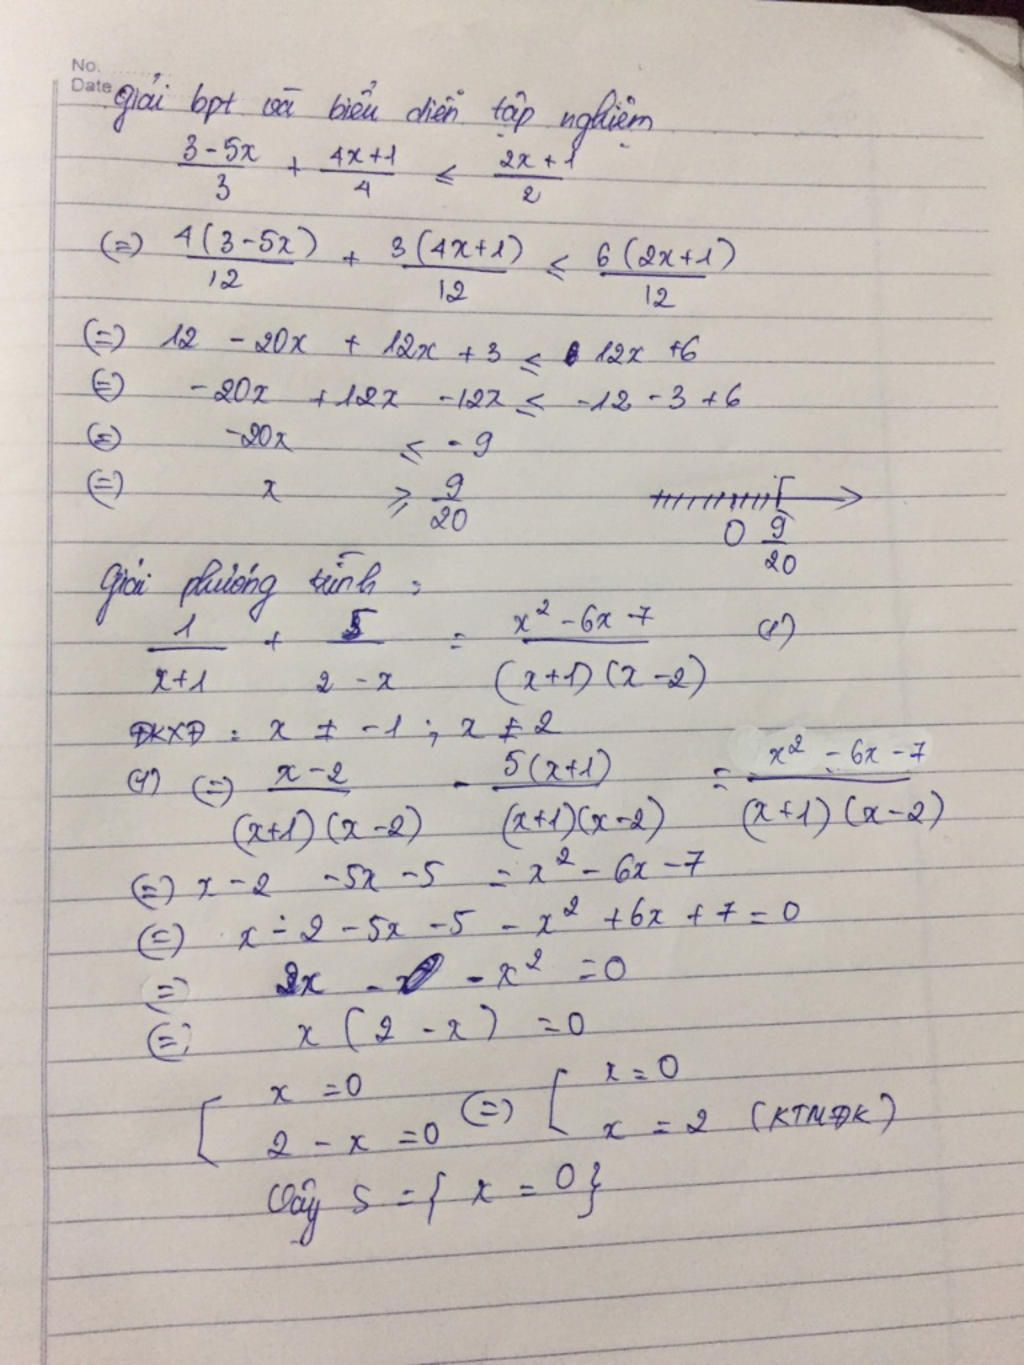 No.
Date
Giải bpt và biểu diễn tập nghiệm
3-5x/3 + 4x+1/4 ≤ 2x+1/2
(=) 4(3-5x)/12 + 3(4x+1)/12 ≤ 6(2x+1)/12
(=) 12 - 20x + 12x + 3 ≤ 12x + 6
(=) -20x + 12x - 12x ≤ -12 - 3 + 6
(=) -20x ≤ -9
(=) x ≥ 9/20
0 9/20
Giải phương trình :
1/x+1 + 5/2-x = x² - 6x - 7/(x+1)(x-2) (1)
ĐKXĐ : x ≠ -1 ; x ≠ 2
(1) (=) x-2/(x+1)(x-2) - 5(x+1)/(x+1)(x-2) = x² - 6x - 7/(x+1)(x-2)
(=) x - 2 - 5x - 5 = x² - 6x - 7
(=) x - 2 - 5x - 5 - x² + 6x + 7 = 0
(=) 2x - x² = 0
(=) x(2 - x) = 0
[ x = 0
2 - x = 0 (=) [ x = 0
x = 2 (KTMĐK)
Vậy S = { x = 0 }